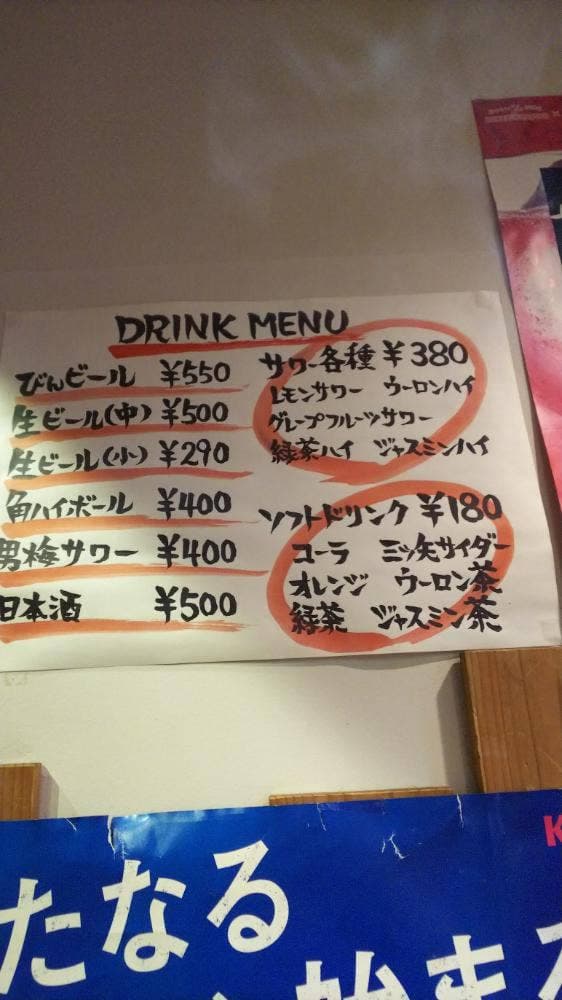 DRINK MENU
びんビール ¥550
生ビール(中) ¥500
生ビール(小) ¥290
角ハイボール ¥400
男梅サワー ¥400
日本酒 ¥500
サワー各種 ¥380
レモンサワー ウーロンハイ
グレープフルーツサワー
緑茶ハイ ジャスミンハイ
ソフトドリンク ¥180
コーラ 三ツ矢サイダー
オレンジ ウーロン茶
緑茶 ジャスミン茶
K
たなる
始まる